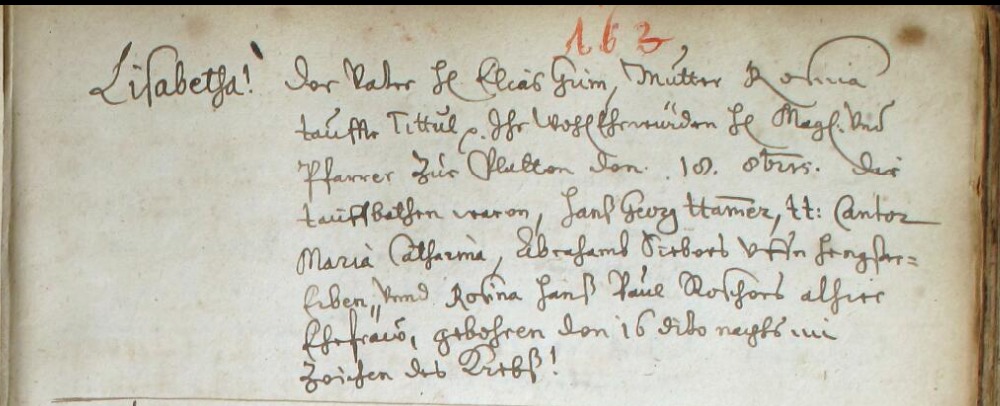 163
Lisabetha! Der Vater H Elias Grim, Mutter Rosinia
tauffte Tittul p. Ihr WohlEhrwürden H Magl. Und
Pfarrer Zur Platten den. 18. 8bris. die
tauffbathen waren, Hanß Georg Hamer, tt: Cantor
Maria Catharina, Abrahamb Siebers Uffn Hengster=
Erben, Unnd Rosina Hanß Paul Roschers alhier
Ehefrau, gebohren den 16 dito nachts im
Zeichen des Krebß!